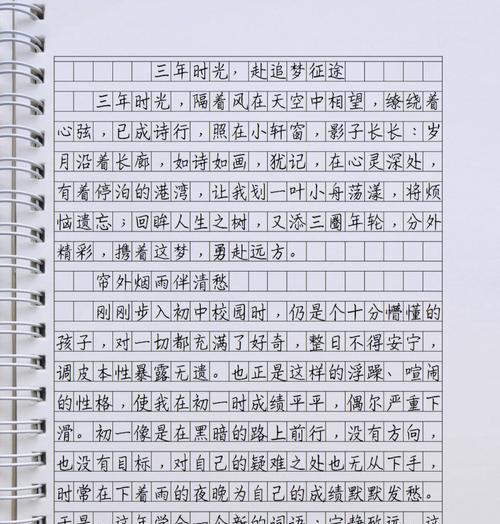 三年时光，赴追梦征途
三年时光，隔着风在天空中相望，缭绕着
心弦，已成诗行，照在小轩窗，影子长长：岁
月沿着长廊，如诗如画，犹记，在心灵深处，
有着停泊的港湾，让我划一叶小舟荡漾，将烦
恼遗忘；回眸人生之树，又添三圈年轮，分外
精彩，携着这梦，勇赴远方。
帘外烟雨伴清愁
刚刚步入初中校园时，仍是个十分懵懂的
孩子，对一切都充满了好奇，整日不得安宁，
调皮本性暴露无遗。也正是这样的浮躁、喧闹
的性格，使我在初一时成绩平平，偶尔严重下
滑。初一像是在黑暗的路上前行，没有方向，
也没有目标，对自己的疑难之处也无从下手，
时常在下着雨的夜晚为自己的成绩默默发愁。
于是，这年学会一个新的词语：宁静致远。这